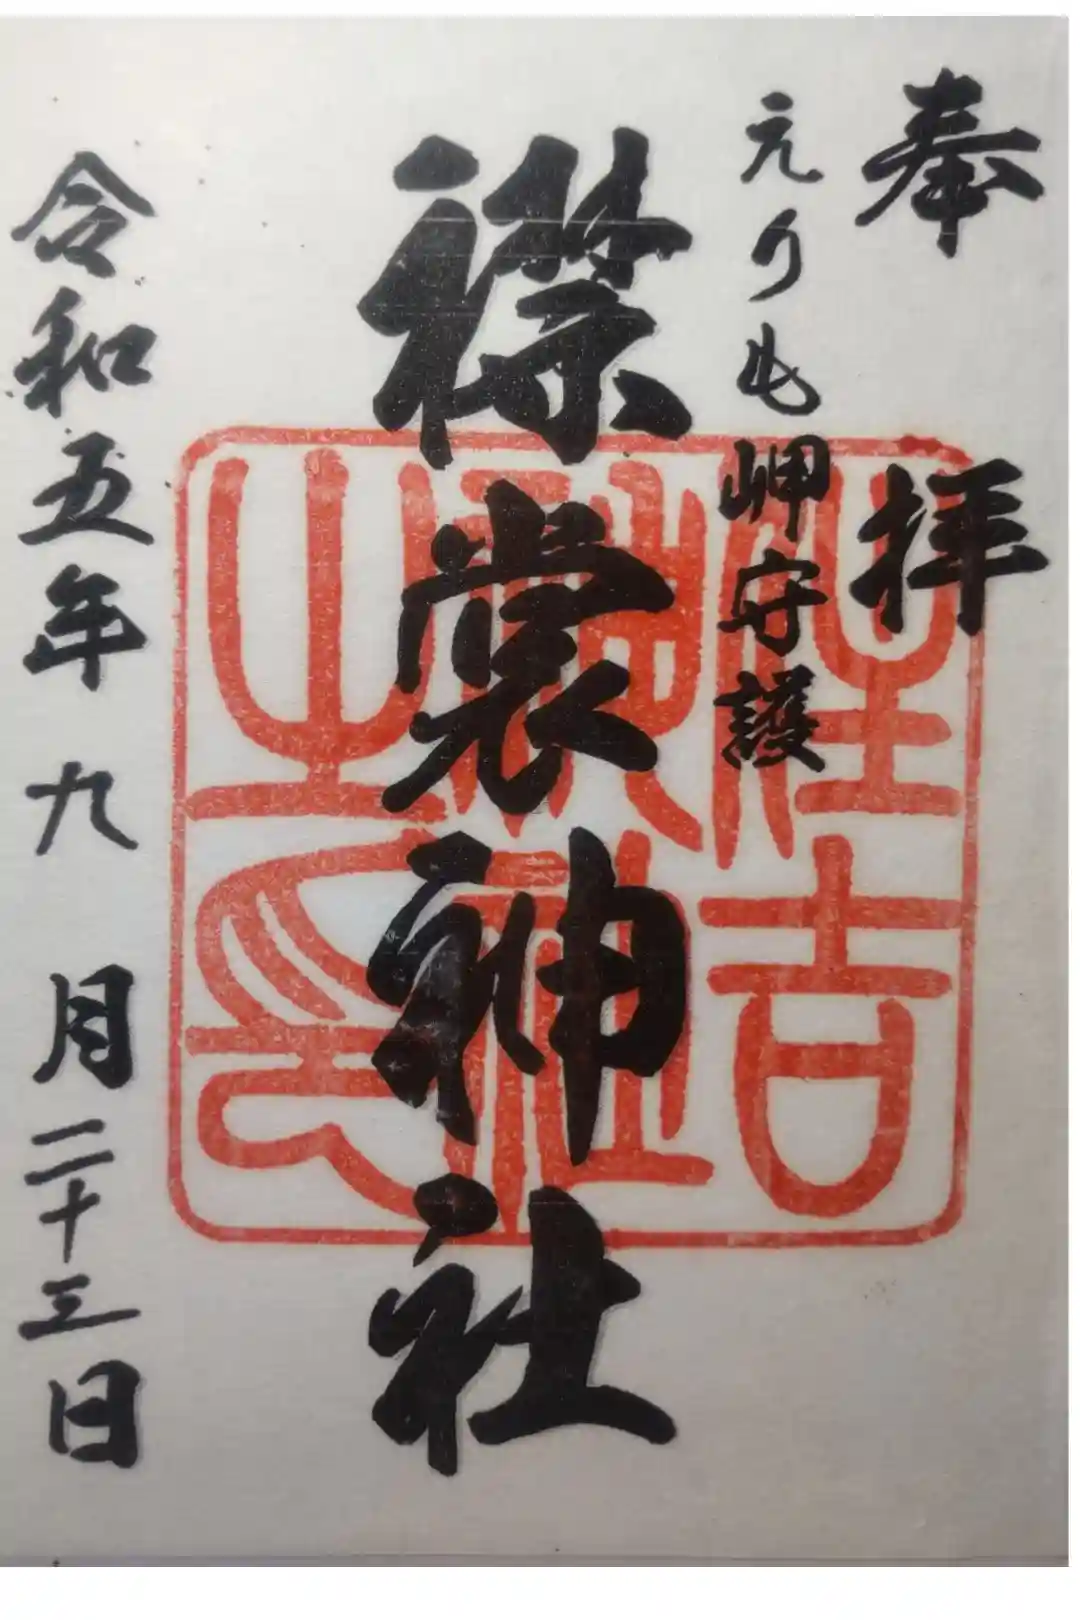 奉拝
えりも岬守護
襟裳神社
令和五年九月二十三日
住吉神社之印